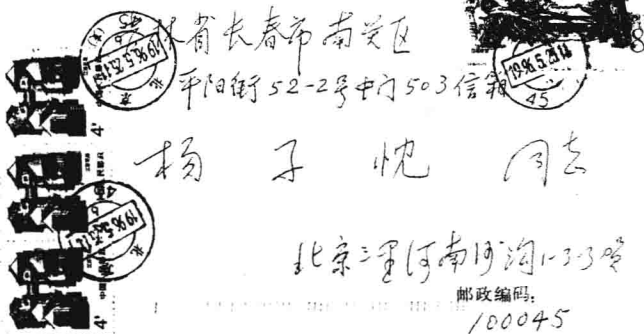 林省长春市南关区
平阳街52-2号中门503信箱
杨子忱 同志
北京三里河南沙沟1-3-3号
邮政编码:
100045
1996.5.23.11
45